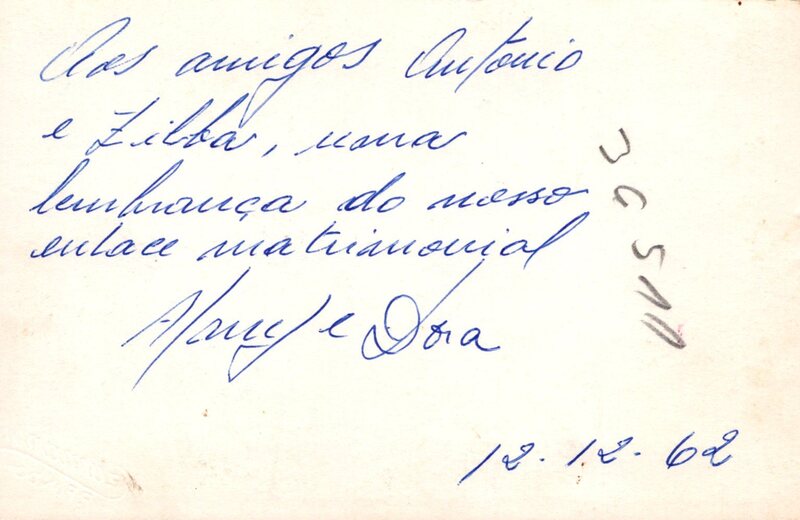 Aos amigos Antonio
e Zilba, uma
lembrança do nosso
enlace matrimonial
e Dora
12.12.62